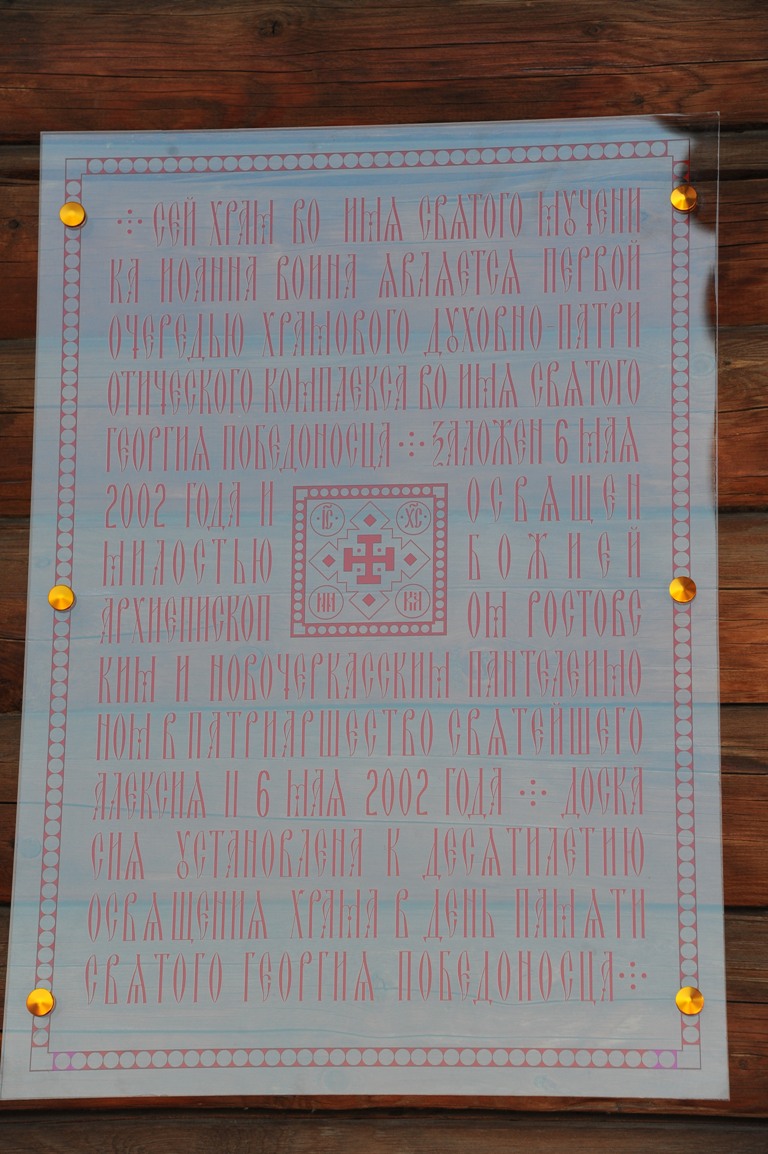 СЕЙ ХРАМ ВО ИМЯ СВЯТОГО МꙋЧЕНИ
КА ИОАННА ВОИНА ЯВЛЯЕТСЯ ПЕРВОЙ
ОЧЕРЕДЬЮ ХРАМОВОГО ДꙋХОВНО-ПАТРИ
ОТИЧЕСКОГО КОМПЛЕКСА ВО ИМЯ СВЯТОГО
ГЕОРГИЯ ПОБЕДОНОСЦА ⁘ ЗАЛОЖЕН 6 МАЯ
2002 ГОДА И ОСВЯЩЕН
МИЛОСТЬЮ БОЖИЕЙ
АРХИЕПИСКОП ОМ РОСТОВС
КИМ И НОВОЧЕРКАССКИМ ПАНТЕЛЕИМО
НОМ В ПАТРИАРШЕСТВО СВЯТЕЙШЕГО
АЛЕКСИЯ II 6 МАЯ 2002 ГОДА ⁘ ДОСКА
СИЯ ꙋСТАНОВЛЕНА К ДЕСЯТИЛЕТИЮ
ОСВЯЩЕНИЯ ХРАМА В ДЕНЬ ПАМЯТИ
СВЯТОГО ГЕОРГИЯ ПОБЕДОНОСЦА ⁘
IС ХС
НИ КА